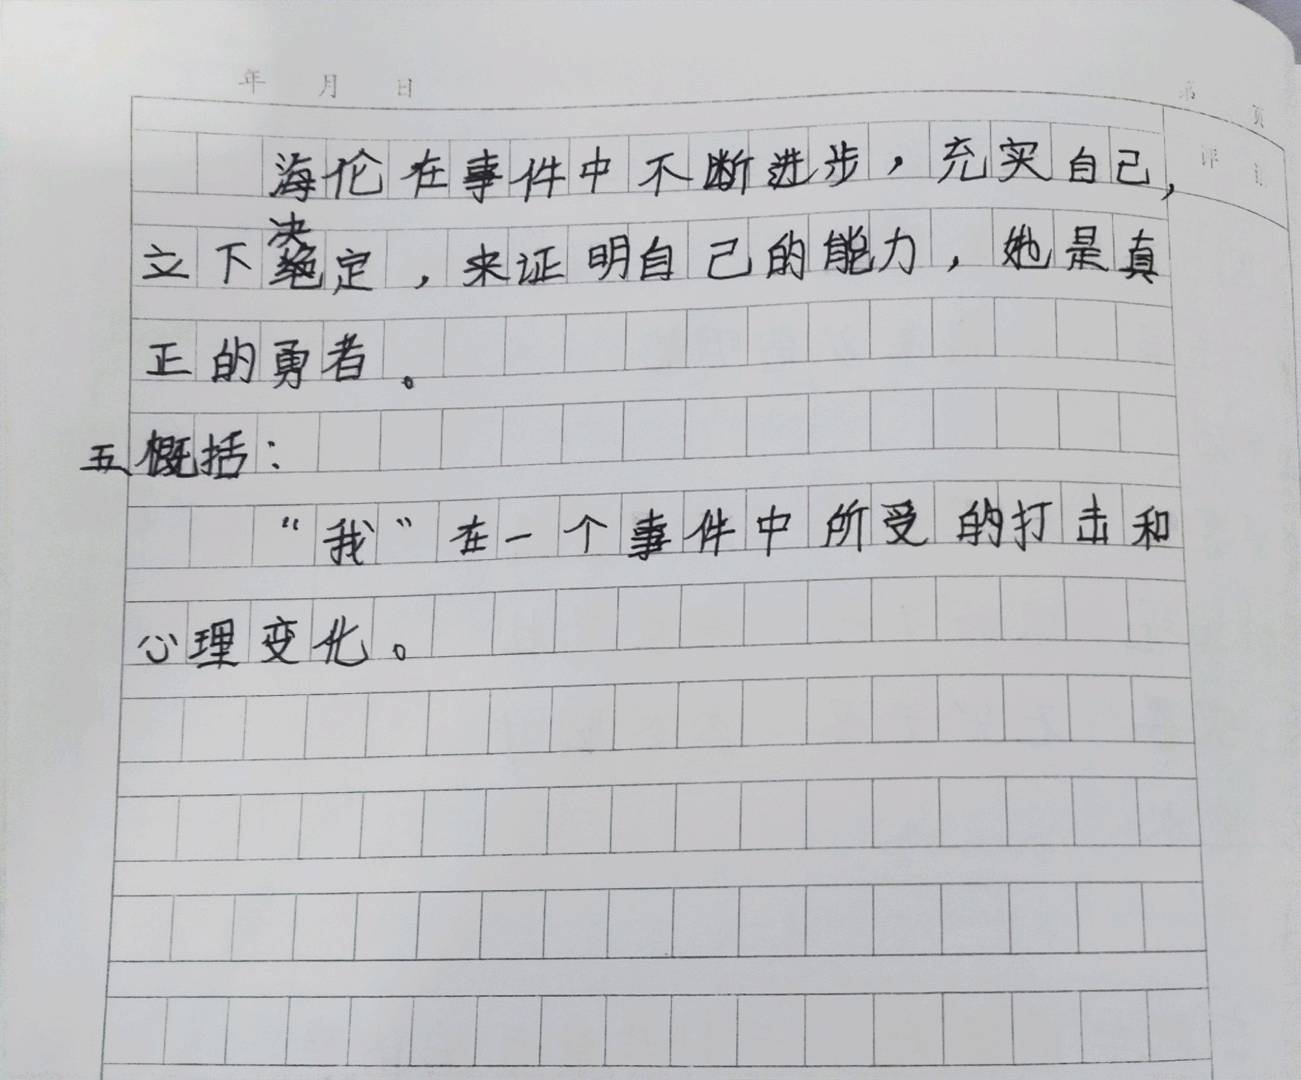 年 月 日
第 页
海伦在事件中不断进步，充实自己，
立下决定，来证明自己的能力，她是真
正的勇者。
五概括：
“我”在一个事件中所受的打击和
心理变化。